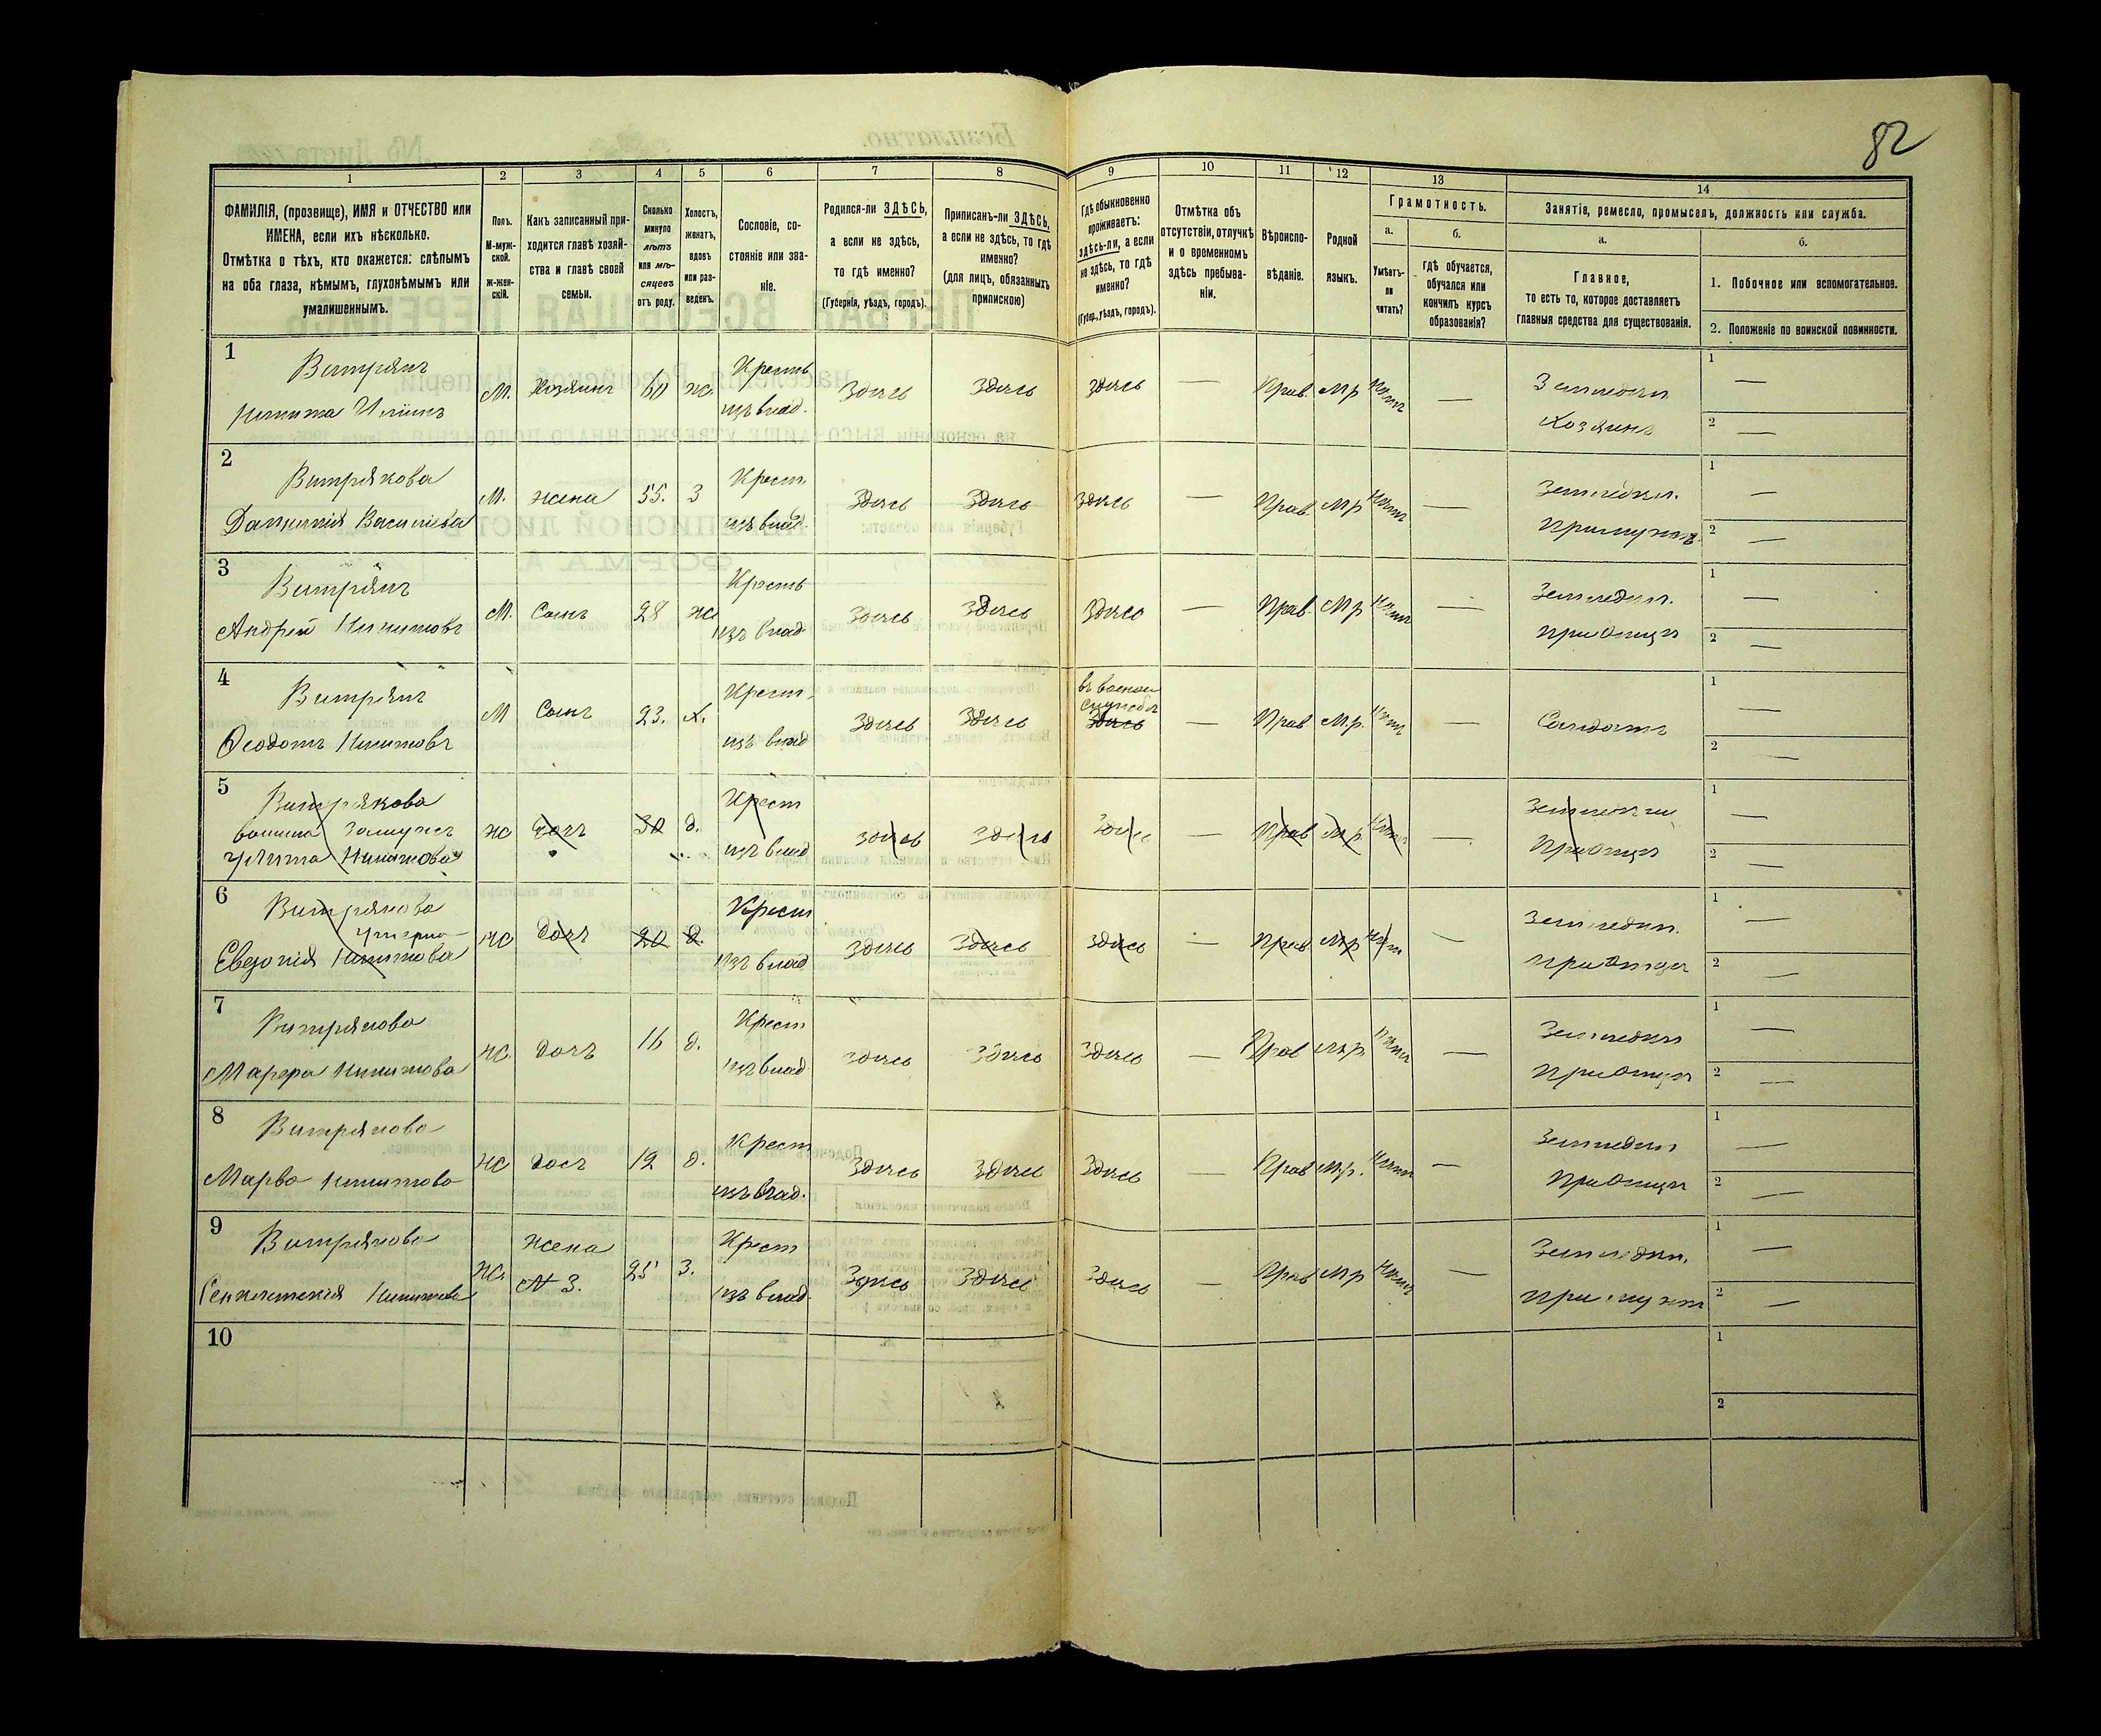 82
1 2 3 4 5 6 7 8 9 10 11 12 13 14
ФАМИЛІЯ, (прозвище), ИМЯ и ОТЧЕСТВО или ИМЕНА, если ихъ нѣсколько.
Отмѣтка о тѣхъ, кто окажется: слѣпымъ на оба глаза, нѣмымъ, глухонѣмымъ или умалишеннымъ.
Полъ.
М-мужской.
Ж-женскій.
Какъ записанный приходится главѣ хозяйства и главѣ своей семьи.
Сколько минуло лѣтъ или мѣсяцевъ отъ роду.
Холостъ, женатъ, вдовъ или разведенъ.
Сословіе, состояніе или званіе.
Родился-ли ЗДѢСЬ, а если не здѣсь, то гдѣ именно?
(Губернія, уѣздъ, городъ).
Приписанъ-ли ЗДѢСЬ, а если не здѣсь, то гдѣ именно?
(для лицъ, обязанныхъ припискою)
Гдѣ обыкновенно проживаетъ: здѣсь-ли, а если не здѣсь, то гдѣ именно?
(Губер., уѣздъ, городъ).
Отмѣтка объ отсутствіи, отлучкѣ и о временномъ здѣсь пребываніи.
Вѣроисповѣданіе.
Родной языкъ.
Грамотность.
а.
Умѣетъ-ли читать?
б.
гдѣ обучается, обучался или кончилъ курсъ образованія?
Занятіе, ремесло, промыселъ, должность или служба.
а.
Главное,
то есть то, которое доставляетъ главныя средства для существованія.
б.
1. Побочное или вспомогательное.
2. Положеніе по воинской повинности.
1 Витрякъ Никита Ильинъ М. Хозяинъ 60 ж. Крестьян. изъ влад. Здѣсь Здѣсь Здѣсь — Прав. Мр Нѣтъ — Земледѣл. Хозяинъ 1 — 2 —
2 Витрякова Васильева М. жена 55. З Крест. изъ влад. Здѣсь Здѣсь Здѣсь — Прав. Мр Нѣтъ — Земледѣл. При мужѣ 1 — 2 —
3 Витрякъ Андрей Никитовъ М. Сынъ 28 ж. Кресть изъ влад. Здѣсь Здѣсь Здѣсь — Прав. Мр Нѣтъ — Земледѣл. при отцѣ 1 — 2 —
4 Витрякъ Ѳеодотъ Никитовъ М Сынъ 23. х. Крест. изъ влад Здѣсь Здѣсь въ военной службѣ Здѣсь — Прав М.р. Нѣтъ — Солдатъ 1 — 2 —
5 Витрякова вышла замужъ Никитова Ж Дочь 30 д. Крест изъ влад Здѣсь Здѣсь Здѣсь — Прав М.р Нѣтъ — Земледѣл При отцѣ 1 — 2 —
6 Витрякова умерла Евдокія Никитова Ж Дочь 20 д. Крест изъ влад Здѣсь Здѣсь Здѣсь — Прав Мр Нѣт — Земледѣл. при отцѣ 1 — 2 —
7 Витрякова Никитова Ж. Дочь 16 д. Крест изъ влад. Здѣсь Здѣсь Здѣсь — Прав М.р. Нѣтъ — Земледѣл При отцѣ 1 — 2 —
8 Витрякова Марва Никитова Ж Дочь 12 д. Крест изъ влад. Здѣсь Здѣсь Здѣсь — Прав М.р. Нѣтъ — Земледѣл При отцѣ 1 — 2 —
9 Витрякова Никитова Ж. Жена № 3. 25 З. Крест изъ влад. Здѣсь Здѣсь Здѣсь — Прав Мр Нѣтъ — Земледѣл. при мужѣ 1 — 2 —
10 1 2